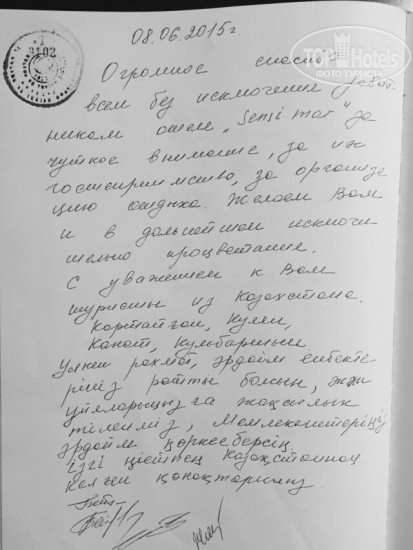 3102
08.06.2015г.
TOP Hotels
ФОТО ТУРИСТА
Огромное спасибо
всем без исключения работ-
никам отеля „Sensimar" за
чуткое внимание, за их
гостеприимство, за организа
цию отдыха. Желаем Вам
и в дальнейшем исключи
тельно процветания.
С уважением к Вам
туристы из Казахстана.
Картайгон, Куляй,
Канат, Кульбаршын.
Улкен рахмет, әрдайім еңбекте
ріңіз ратты болсын,
ұяларыңызға жақсылық
тілейміз, Мемлекеттеріңіз
әрдайм көркееберсің
ізгі ниетпен Казақстаннан
келген қонақтарыңыз